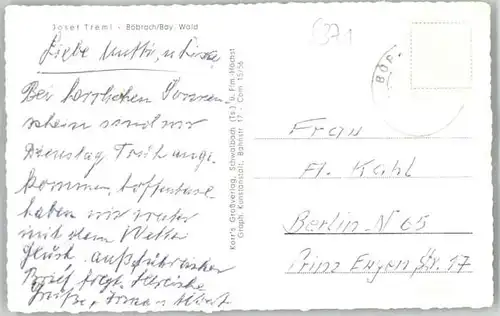 Josef Treml - Böbrach/Bay. Wald
Liebe Mutti, u
Bei herrlichen Sonnen-
schein sind wir
Dienstag Früh ange-
kommen, hoffentlich
haben wir weiter
mit dem Wetter
Glück. ausführlicher
Brief folgt. Herzliche
Grüße,
Korr's Großverlag, Schwalbach (Ts.) u. Ffm.-Höchst
Graph. Kunstanstalt, Bahnstr. 17 - Com 15/56
BÖB
Frau
A. Kahl
Berlin-N 65
Prinz Eugen Str. 17